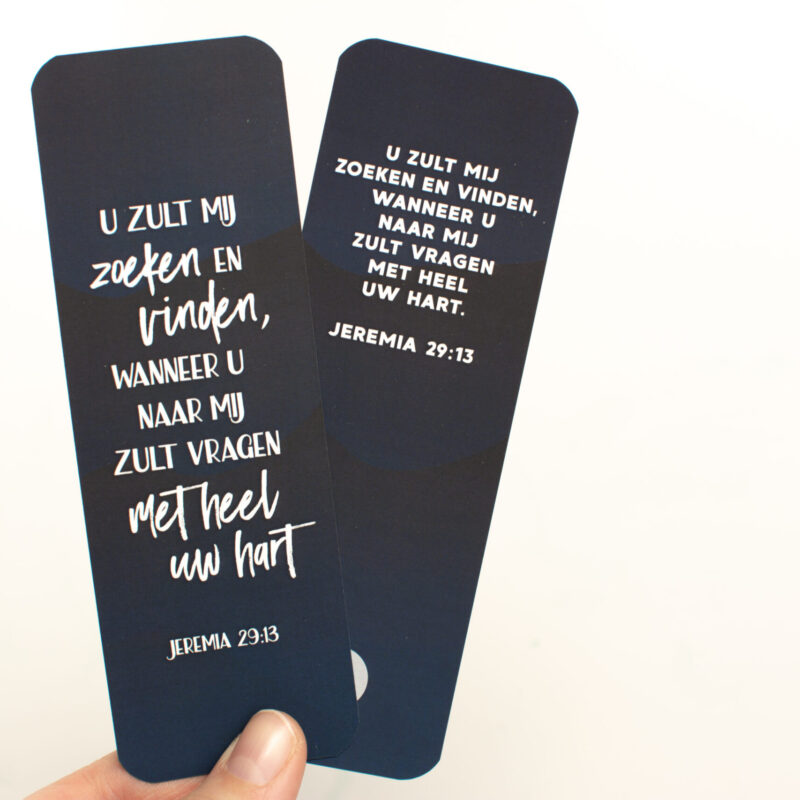 U ZULT MIJ
zoeken EN
vinden,
WANNEER U
NAAR MIJ
ZULT VRAGEN
met heel
uw hart
JEREMIA 29:13
U ZULT MIJ
ZOEKEN EN VINDEN,
WANNEER U
NAAR MIJ
ZULT VRAGEN
MET HEEL
UW HART.
JEREMIA 29:13